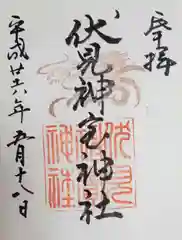 奉拝
伏見神宝神社
伏見
神宝
神社
平成廿六年五月十八日